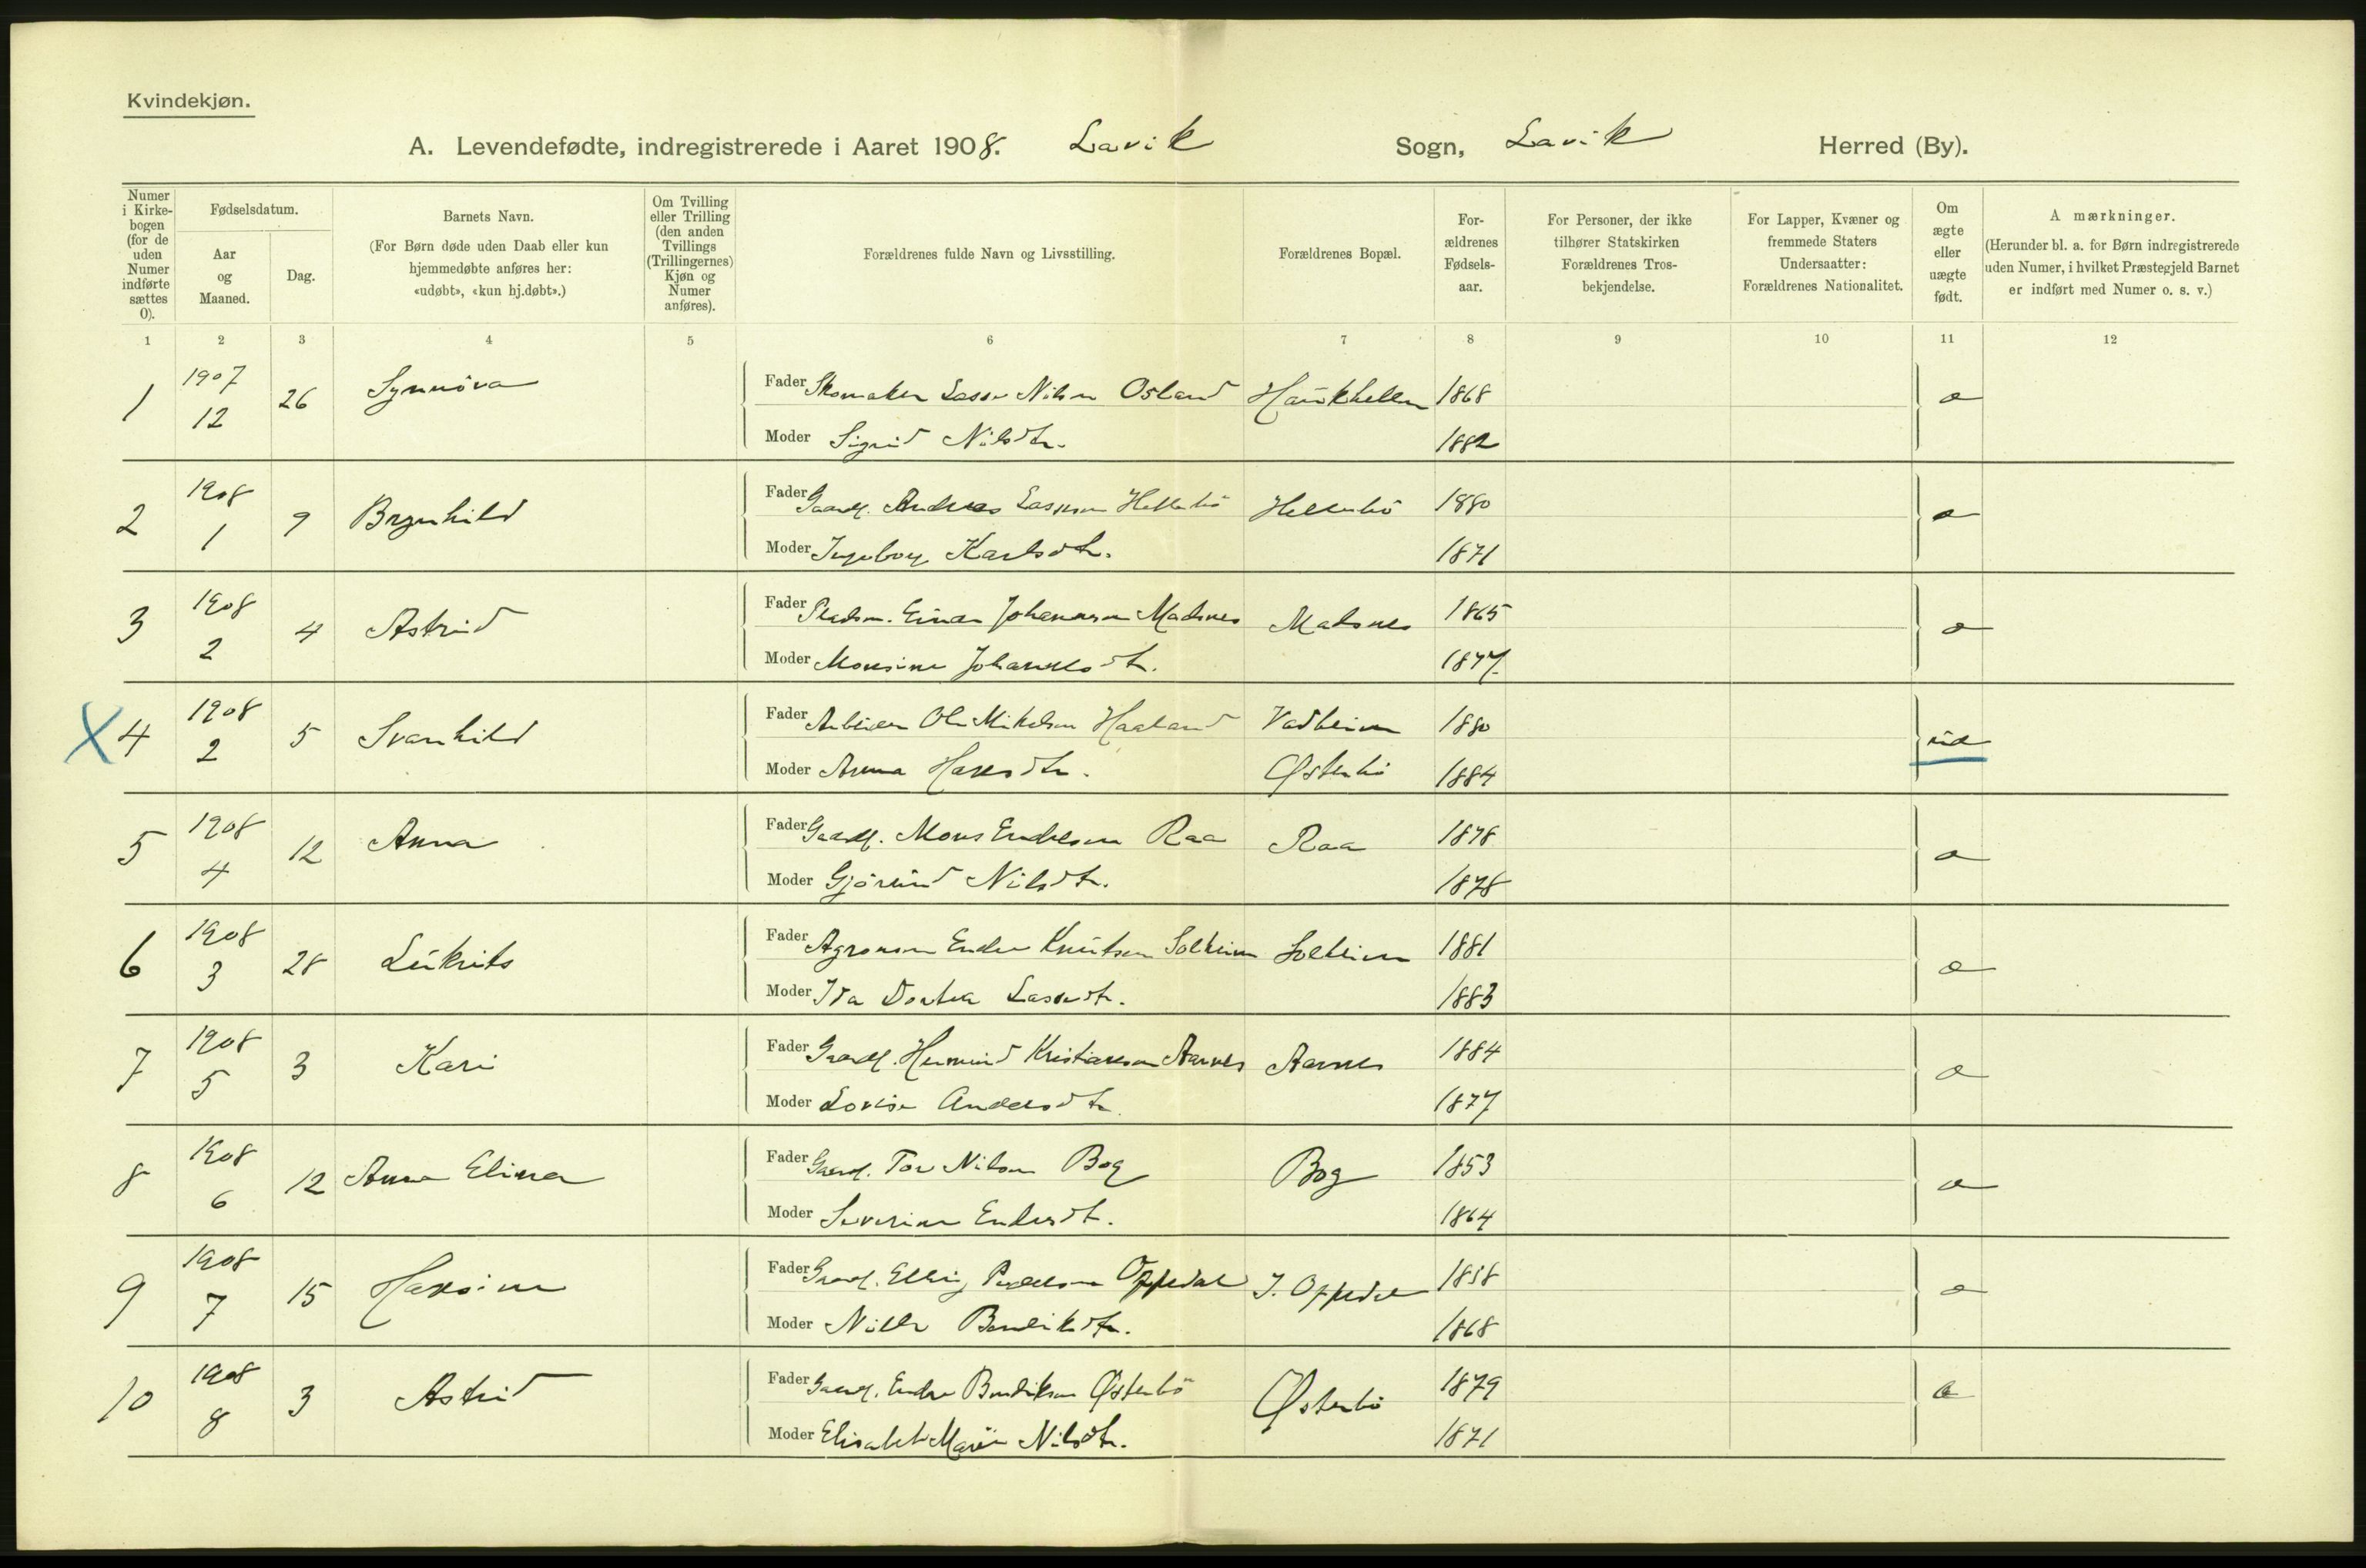 Kvindekjøn.
A. Levendefødte, indregistrerede i Aaret 1908. Lavik Sogn, Lavik Herred (By).
Numer i Kirkebogen (for de uden Numer indførte sættes 0).
Fødselsdatum.
Aar og Maaned.
Dag.
Barnets Navn.
(For Børn døde uden Daab eller kun hjemmedøbte anføres her: «udøbt», «kun hj.døbt».)
Om Tvilling eller Trilling (den anden Tvillings (Trillingernes) Kjøn og Numer anføres).
Forældrenes fulde Navn og Livsstilling.
Forældrenes Bopæl.
Forældrenes Fødselsaar.
For Personer, der ikke tilhører Statskirken Forældrenes Trosbekjendelse.
For Lapper, Kvæner og fremmede Staters Undersaatter: Forældrenes Nationalitet.
Om ægte eller uægte født.
A mærkninger.
(Herunder bl. a. for Børn indregistrerede uden Numer, i hvilket Præstegjeld Barnet er indført med Numer o. s. v.)
1 2 3 4 5 6 7 8 9 10 11 12
1 1907 12 26 Synnöva Fader Skomaker Lasse Nilsen Osland 1868
Moder Sigrid Nilsdtr. 1882
2 1908 1 9 Brynhild Fader Gaardf. Andreas Lassesen Hellebö Hellebö 1880
Moder Ingeborg Karlsdtr. 1871
3 1908 2 4 Astrid Fader Pladsm. Einar Johannesen Madsnes Madsnes 1865
Moder Monsine Johannesdtr. 1877
X 4 1908 2 5 Svanhild Fader Arbeider Ole Mikelsen Haaland Vadheim 1880 uæ
Moder Anna Hansdtr. Østerbö 1884
5 1908 4 12 Anna Fader Gaardf. Mons Endresen Raa Raa 1878
Moder Nilsdtr. 1878
6 1908 3 28 Fader Agronom Endre Knutsen Solheim Solheim 1881
Moder Ida Dortea Lassedtr. 1883
7 1908 5 3 Kari Fader Gaardf. Kristiansen Aarnes Aarnes 1884
Moder Lovise Andersdtr. 1877
8 1908 6 12 Anna Elina Fader Gaardf. Tor Nilsen Bog Bog 1853
Moder Severine Endresdtr. 1864
9 1908 7 15 Hansine Fader Gaardf. Elling Pedersen Oppedal I. Oppedal 1858
Moder Nille Bendiksdtr. 1868
10 1908 8 3 Astrid Fader Gaardf. Endre Bendiksen Østerbö Østerbö 1879
Moder Elisabet Marie Nilsdtr. 1871